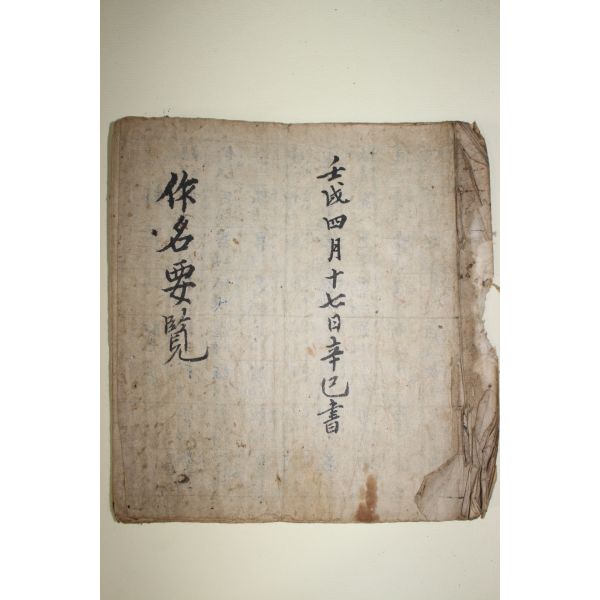 壬戌四月十七日辛巳書
作名要覧